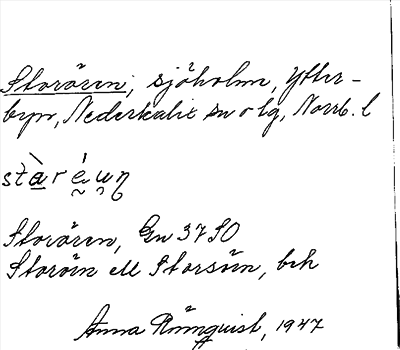 Storören, sjöholme, Ytter-
byn, Nederkalix sn o lg, Norrb. l
Storören, Gn 3750
Storön el Storsön, beh
Anna Rönnquist, 1947